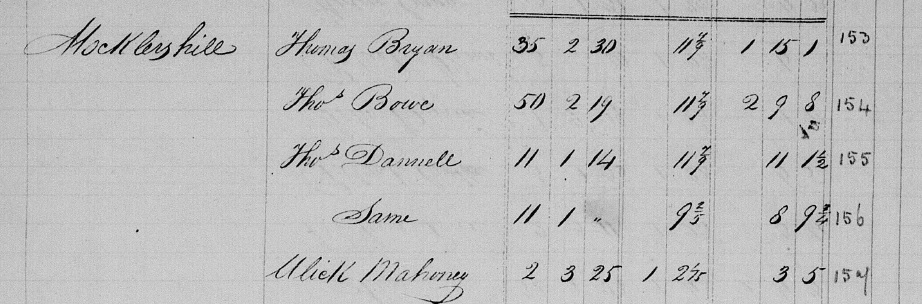 Mocklershill Thomas Bryan 35 2 30 11 7/9 1 15 1 153
Thos Bowe 50 2 19 11 7/9 2 9 8 154
Thos Dannell 11 1 14 11 7/9 11 1 1/2 155
Same 11 1 " 9 2/5 8 9 3/4 156
Ulick Mahoney 2 3 25 1 3 5 157